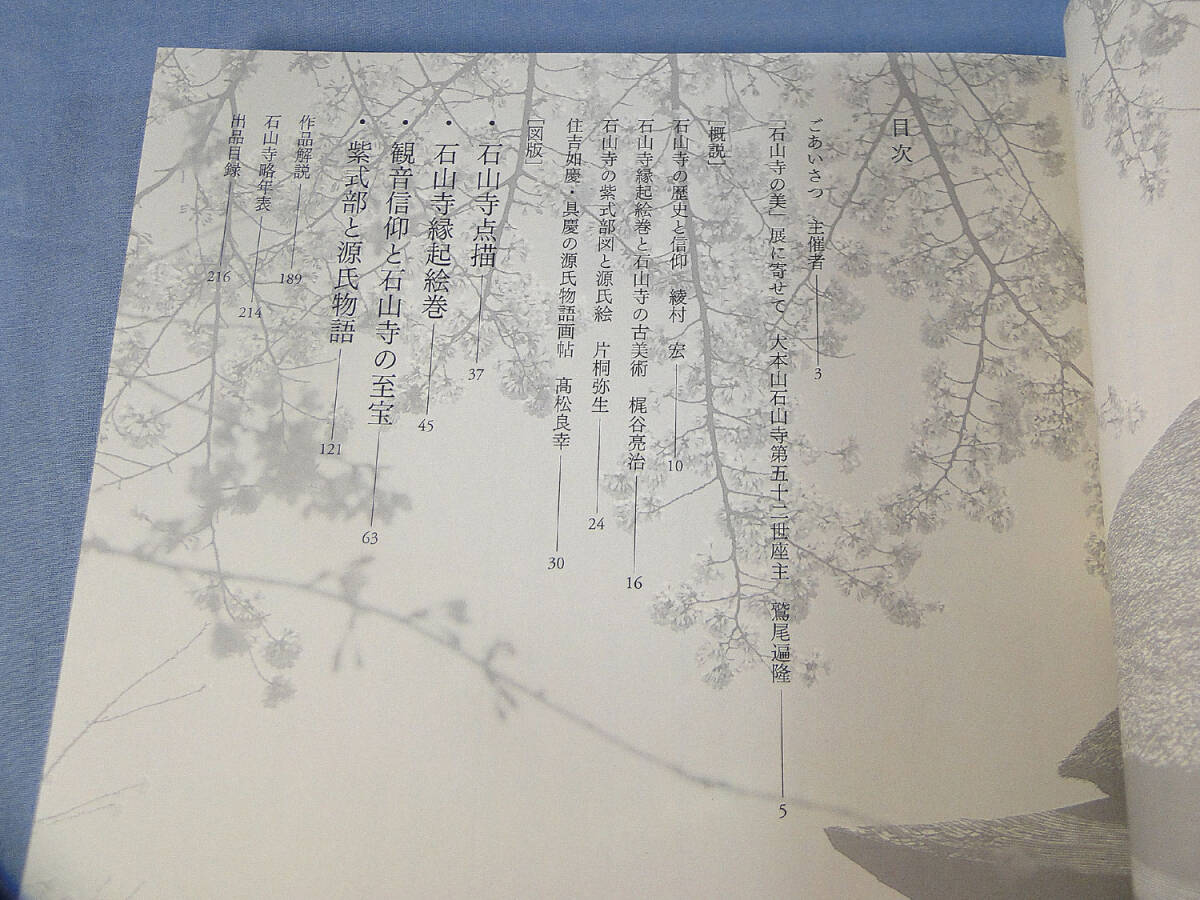 目次
ごあいさつ　主催者 3
「石山寺の美」展に寄せて　大本山石山寺第五十二世座主　鷲尾遍隆 5
[概説]
石山寺の歴史と信仰　綾村　宏 10
石山寺縁起絵巻と石山寺の古美術　梶谷亮治 16
石山寺の紫式部図と源氏絵　片桐弥生 24
住吉如慶・具慶の源氏物語画帖　髙松良幸 30
[図版]
・石山寺点描 37
・石山寺縁起絵巻 45
・観音信仰と石山寺の至宝 63
・紫式部と源氏物語 121
作品解説 189
石山寺略年表 214
出品目録 216